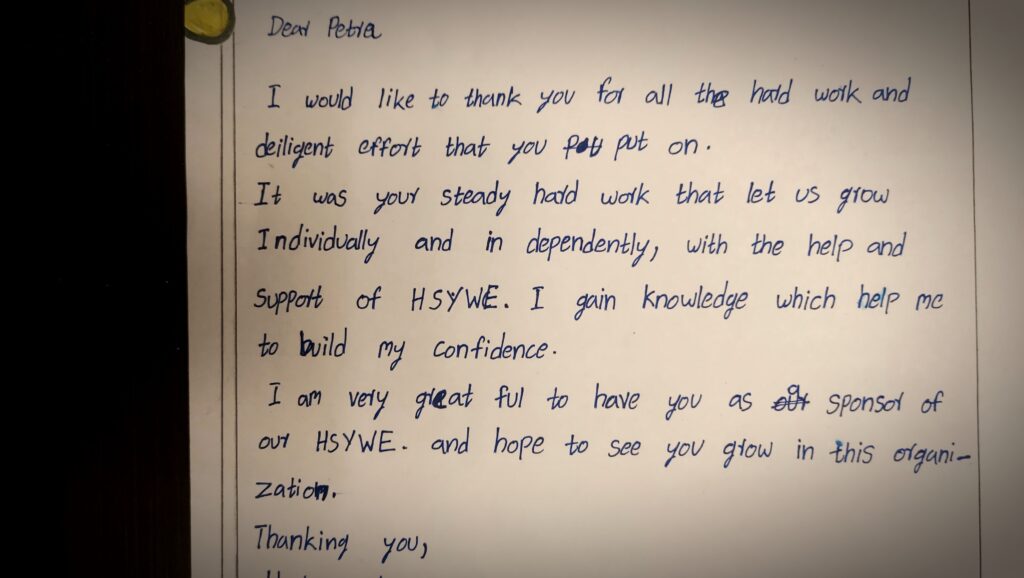 Dear Petra
I would like to thank you for all the hard work and
deiligent effort that you put on.
It was your steady hard work that let us grow
Individually and in dependently, with the help and
support of HSYWE. I gain knowledge which help me
to build my confidence.
I am very great ful to have you as a sponsor of
our HSYWE. and hope to see you grow in this organi-
zation.
Thanking you,